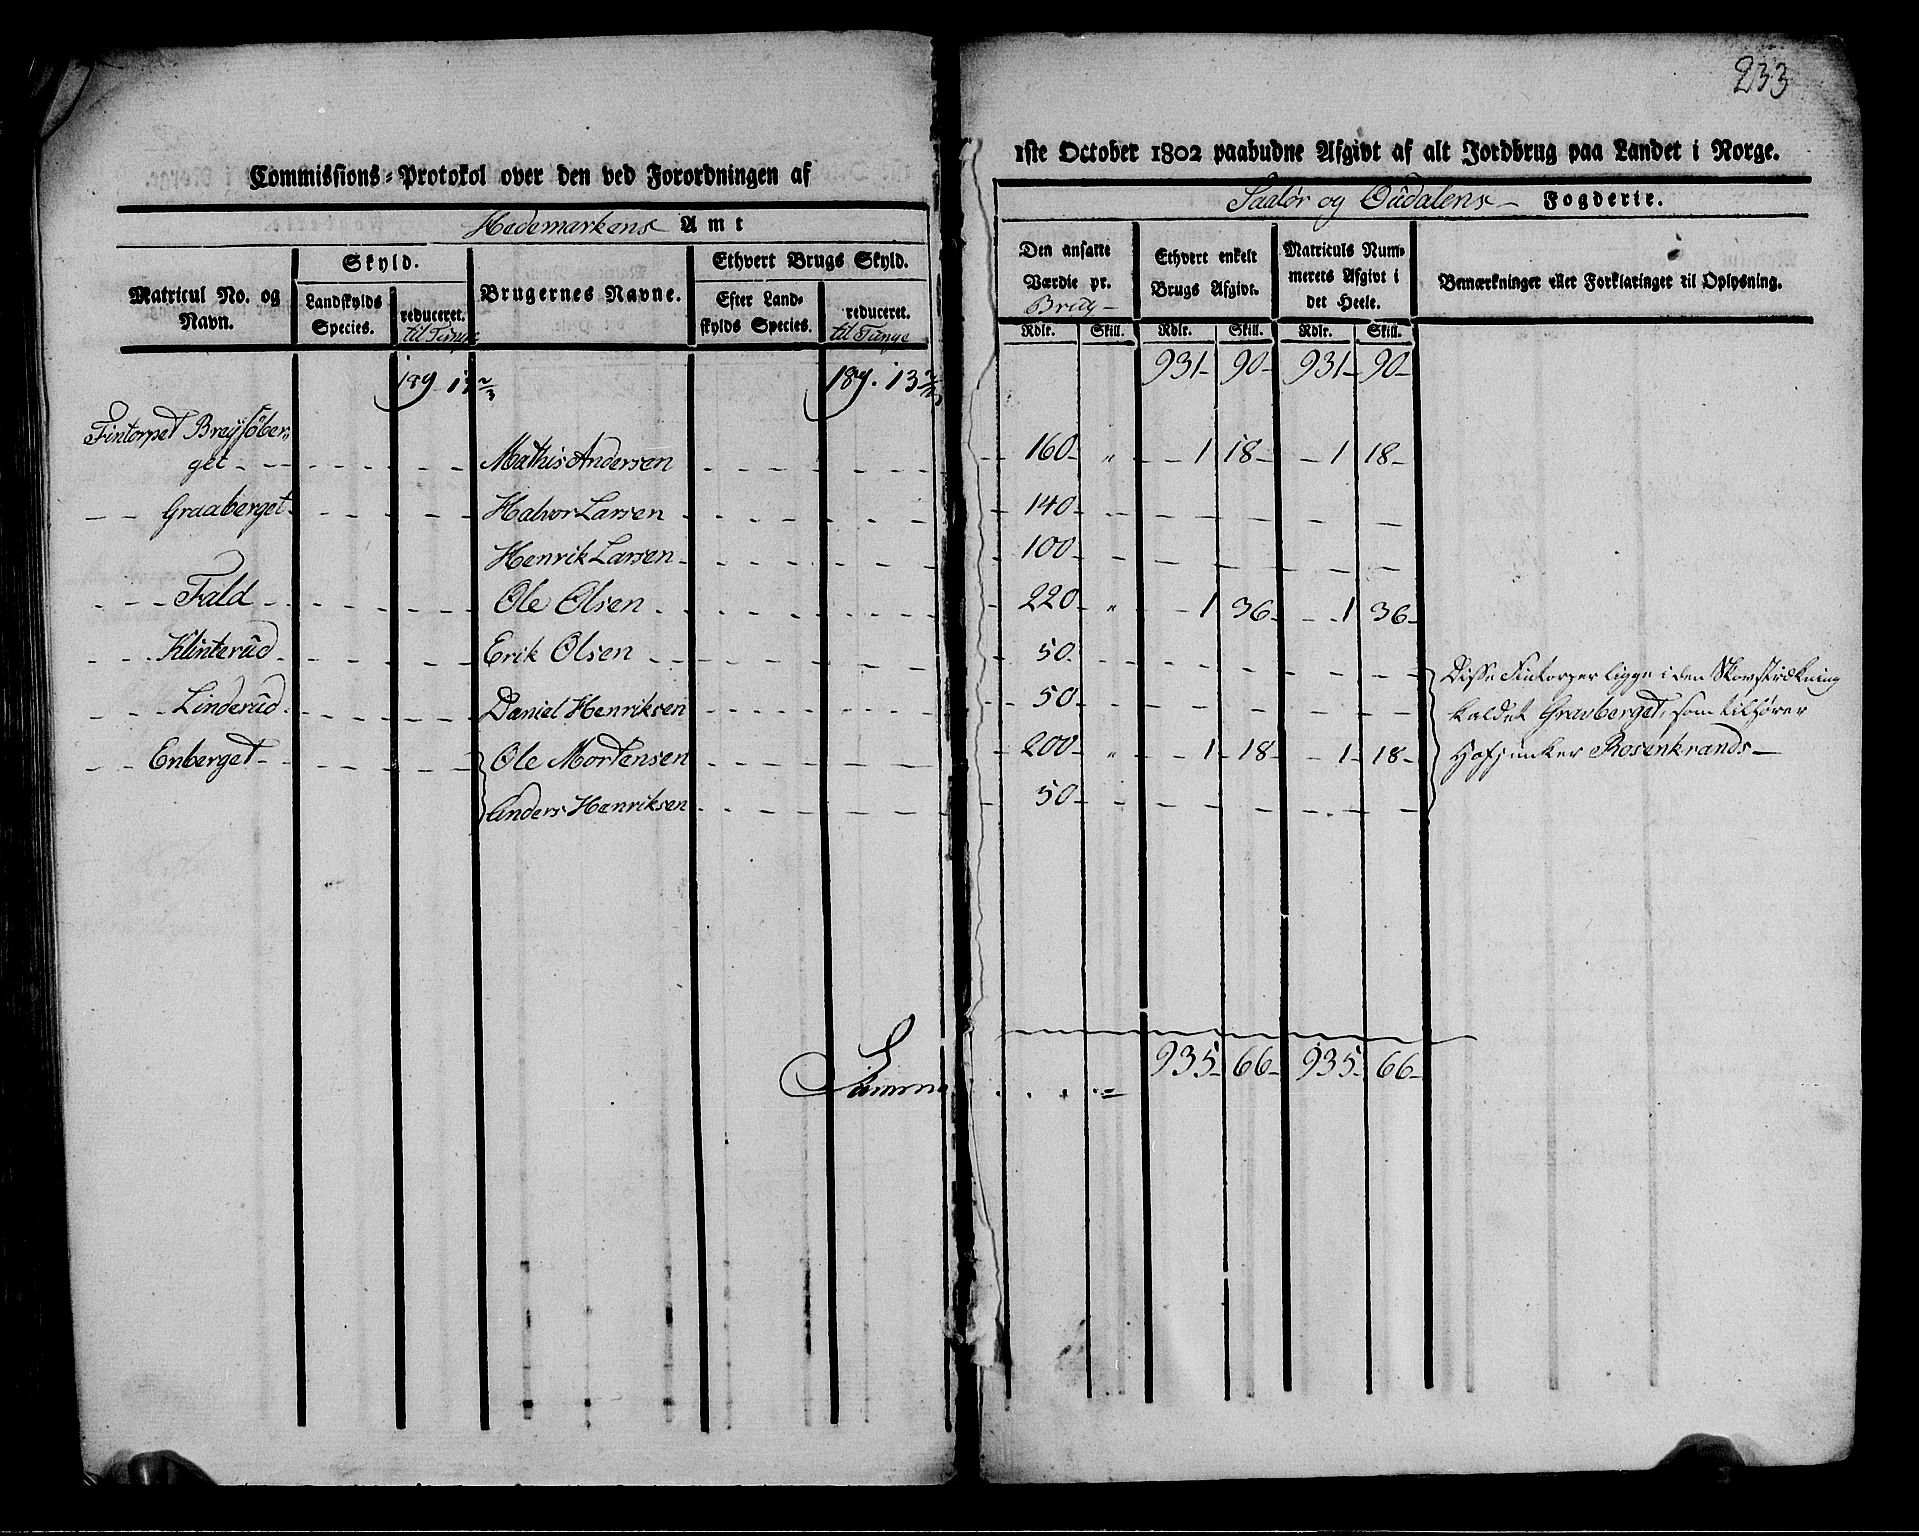 233
Commissions-Protokol over den ved Forordningen af
1ste October 1802 paabudne Afgivt af alt Jordbrug paa Landet i Norge.
Hedemarkens Amt
Soelør og Oudalens Fogderie.
Matricul No. og Navn.
Skyld.
Landskylds Species.
reduceret. til Tunge
Brugernes Navne.
Ethvert Brugs Skyld.
Efter Landskylds Species.
reduceret. til Tunge
Den ansatte Værdie pr. Brug
Ethvert enkelt Brugs Afgivt.
Matriculs Nummerets Afgivt i det Heele.
Bemærkninger eller Forklaringer til Oplysning.
Rdlr. Skill. Rdlr. Skill. Rdlr. Skill.
189. 13 2/3 189. 13 2/3 931 90 931 90
Fintorpet
get Mathis Andersen 160 " 1 18 1 18
Graaberget Halvor Larsen 140
Henrik Larsen 100
Fald Ole Olsen 220 " 1 36 1 36
Klinterud Erik Olsen 50
Linderud Daniel Henriksen 50
Enberget Ole Mortensen 200 " 1 18 1 18
Anders Henriksen 50
Disse Fintorper ligge i den Skovstrækning
kaldet Gravberget, som tilhører
Hofjunker Rosenkrands
Summa 935 66 935 66